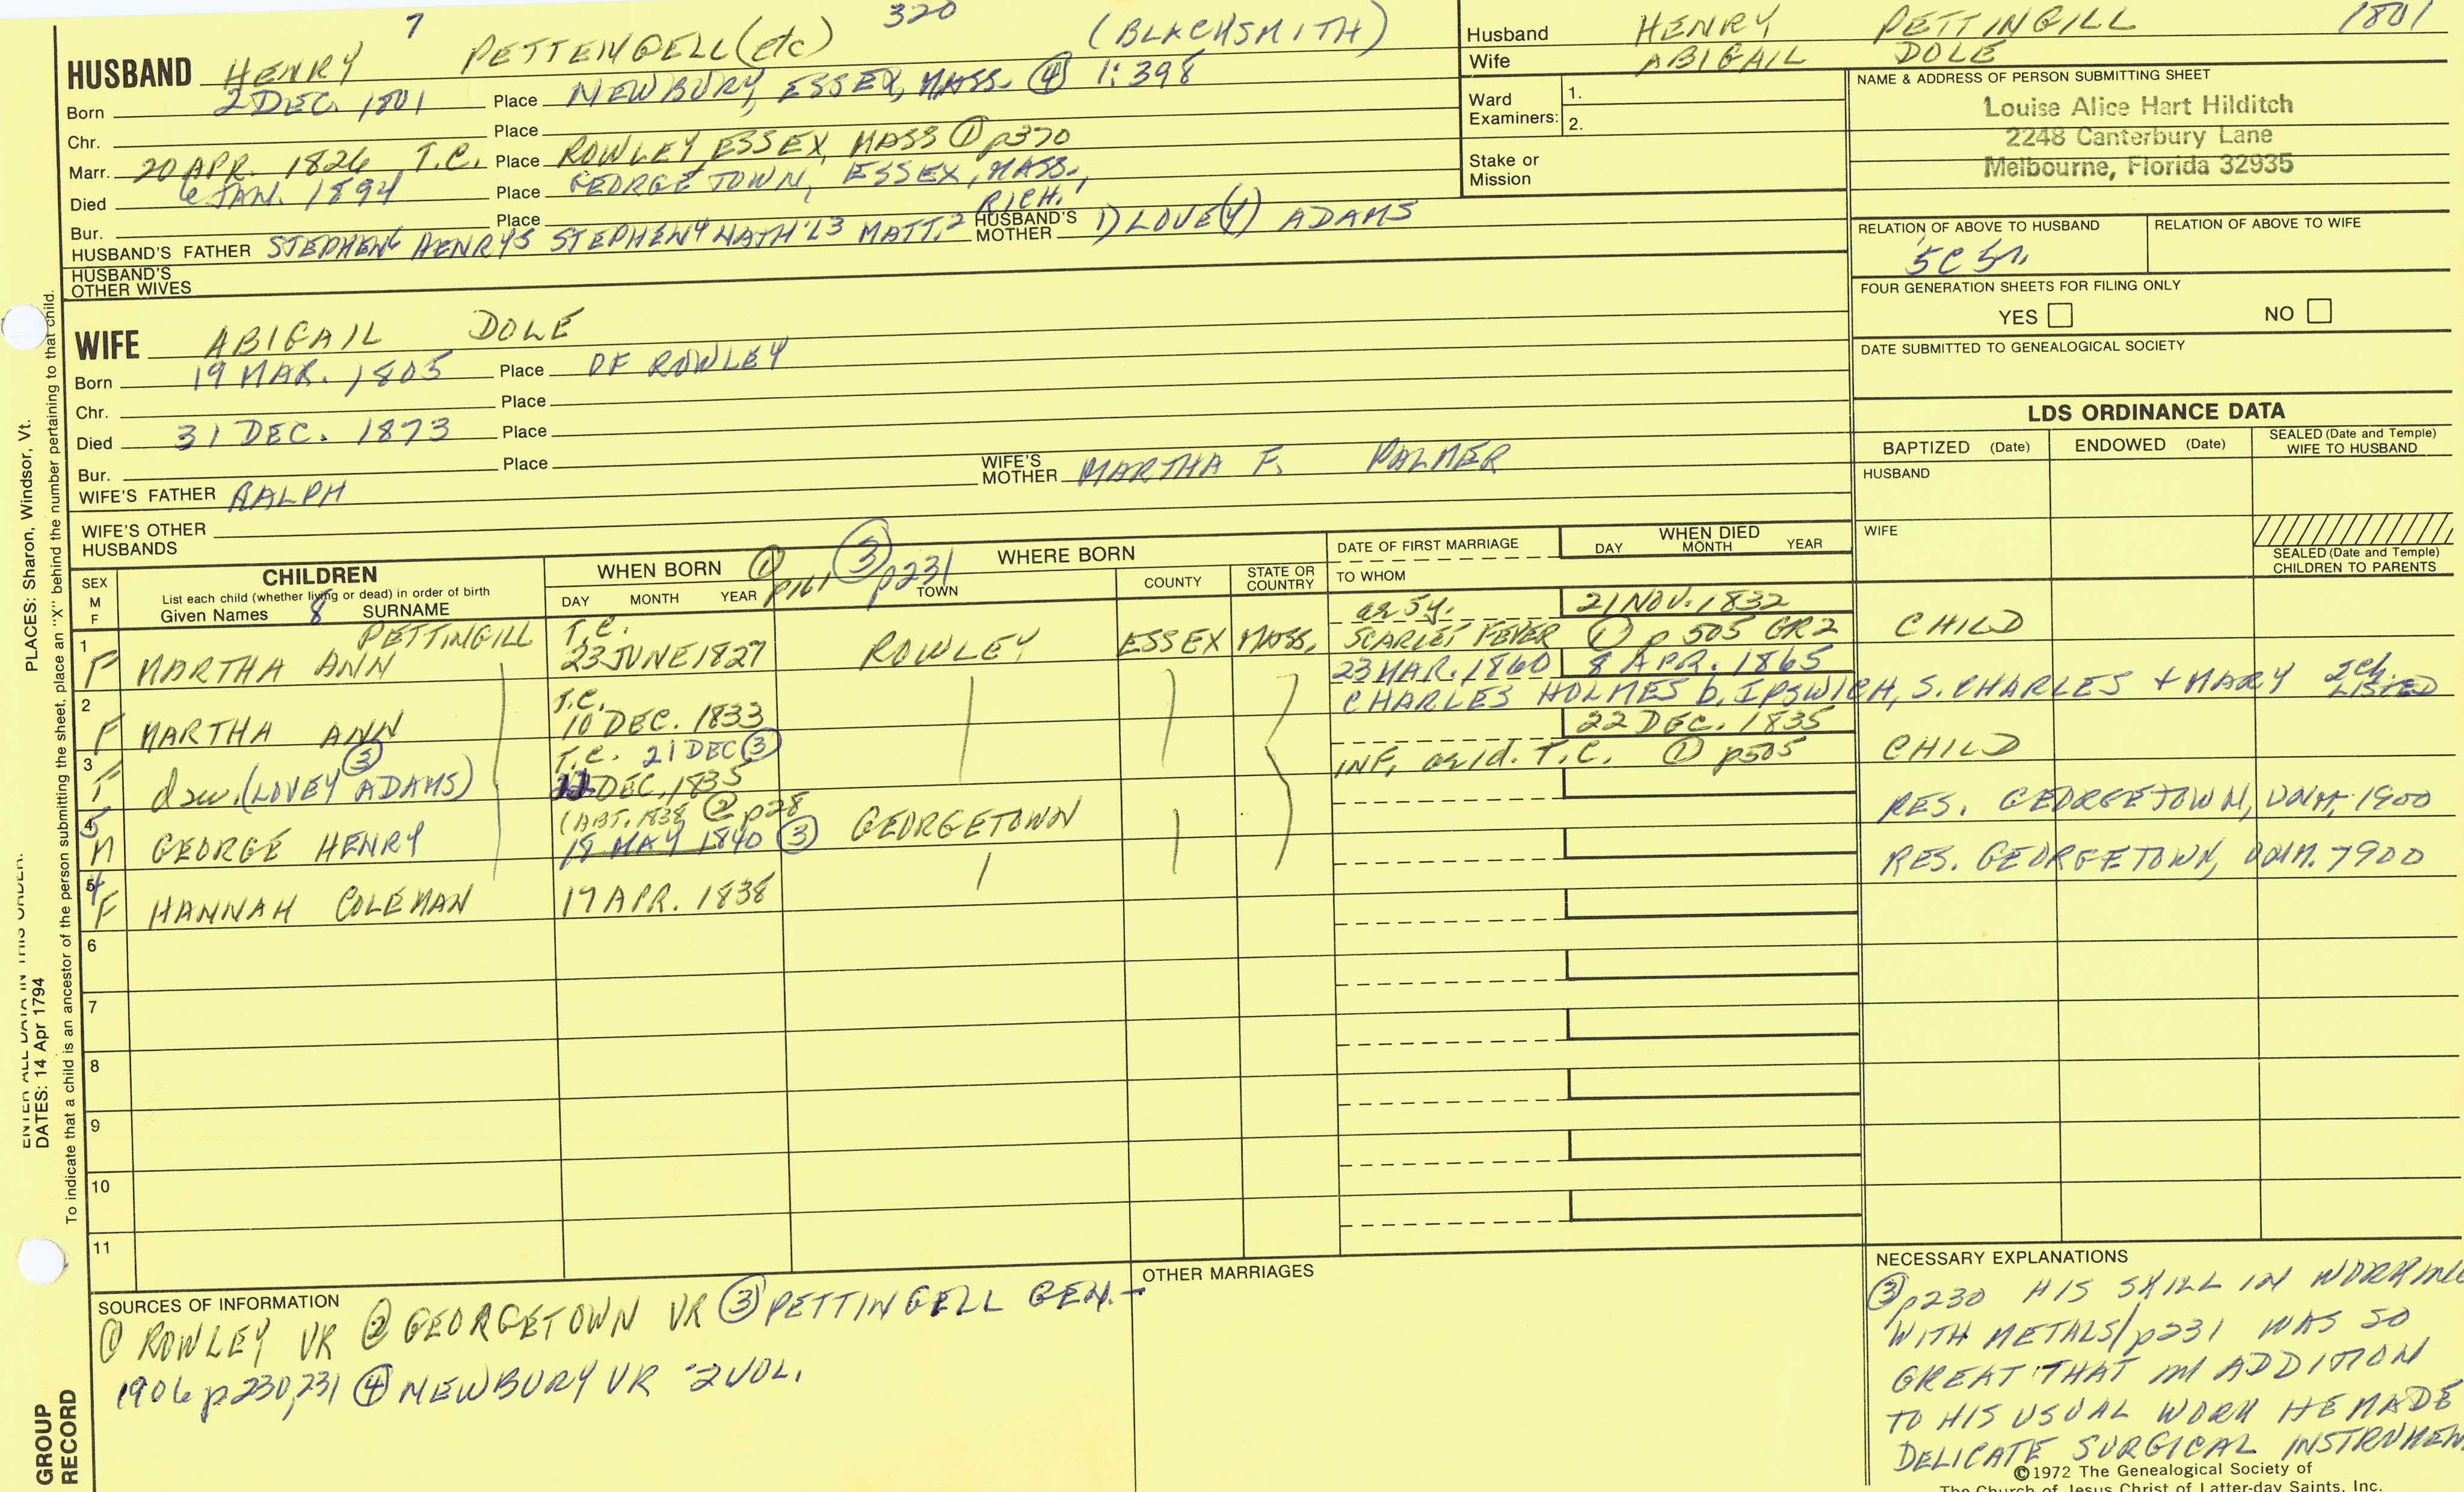 7 320
HUSBAND HENRY PETTENGELL (etc) (BLACKSMITH)
Born 2 DEC. 1801 Place NEWBURY, ESSEX, MASS. ④ 1:398
Chr. Place
Marr. 20 APR. 1826 T.C. Place ROWLEY, ESSEX, MASS ① p370
Died 6 JAN. 1894 Place GEORGETOWN, ESSEX, MASS.
Bur. Place
HUSBAND'S FATHER STEPHEN6 HENRY5 STEPHEN4 NATH'L3 MATT.2 RICH.1 HUSBAND'S MOTHER 1) LOVE(Y) ADAMS
HUSBAND'S OTHER WIVES
WIFE ABIGAIL DOLE
Born 19 MAR. 1805 Place OF ROWLEY
Chr. Place
Died 31 DEC. 1873 Place
Bur. Place
WIFE'S FATHER RALPH WIFE'S MOTHER MARTHA F. PALMER
WIFE'S OTHER HUSBANDS
Husband HENRY PETTINGILL 1801
Wife ABIGAIL DOLE
Ward Examiners: 1.
2.
Stake or Mission
NAME & ADDRESS OF PERSON SUBMITTING SHEET
Louise Alice Hart Hilditch
2248 Canterbury Lane
Melbourne, Florida 32935
RELATION OF ABOVE TO HUSBAND RELATION OF ABOVE TO WIFE
5C 5r.
FOUR GENERATION SHEETS FOR FILING ONLY
YES NO
DATE SUBMITTED TO GENEALOGICAL SOCIETY
LDS ORDINANCE DATA
BAPTIZED (Date) ENDOWED (Date) SEALED (Date and Temple) WIFE TO HUSBAND
HUSBAND
WIFE
SEALED (Date and Temple) CHILDREN TO PARENTS
SEX M F
CHILDREN
List each child (whether living or dead) in order of birth
Given Names 8 SURNAME
WHEN BORN ① p161 ③ p231 WHERE BORN
DAY MONTH YEAR TOWN COUNTY STATE OR COUNTRY
DATE OF FIRST MARRIAGE
TO WHOM
WHEN DIED
DAY MONTH YEAR
1 PETTINGILL T.C. ae 5y. 21 NOV. 1832
F MARTHA ANN 23 JUNE 1827 ROWLEY ESSEX MASS. SCARLET FEVER ① p 505 GR2 CHILD
2 T.C. 23 MAR. 1860 8 APR. 1865
F MARTHA ANN 10 DEC. 1833 CHARLES HOLMES b. IPSWICH, S. CHARLES + MARY 2ch. LISTED
3 T.C. 21 DEC ③ 22 DEC. 1835
F dau. (LOVEY ADAMS) ③ DEC. 1835 INF, ae 1d. T.C. ① p505 CHILD
4 5 (ABT. 1838 ② p28
M GEORGE HENRY 18 MAY 1840 ③ GEORGETOWN RES. GEORGETOWN, UNM. 1900
5 4
F HANNAH COLEMAN 17 APR. 1838 RES. GEORGETOWN, UNM. 1900
6
7
8
9
10
11
SOURCES OF INFORMATION
① ROWLEY VR ② GEORGETOWN VR ③ PETTINGELL GEN.-
1906 p230,231 ④ NEWBURY VR -2 VOL.
OTHER MARRIAGES
NECESSARY EXPLANATIONS
③ p230 HIS SKILL IN WORKING
WITH METALS/p231 WAS SO
GREAT THAT IN ADDITION
TO HIS USUAL WORK HE MADE
DELICATE SURGICAL INSTRUMEN
©1972 The Genealogical Society of
The Church of Jesus Christ of Latter-day Saints, Inc.
PLACES: Sharon, Windsor, Vt.
To indicate that a child is an ancestor of the person submitting the sheet, place an "X" behind the number pertaining to that child.
ENTER ALL DATA IN THIS ORDER:
DATES: 14 Apr 1794
GROUP
RECORD